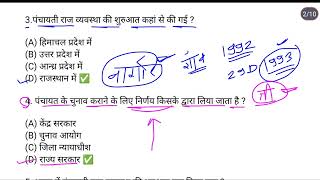 2/10
3.पंचायती राज व्यवस्था की शुरुआत कहां से की गई ?
(A) हिमाचल प्रदेश में
(B) उत्तर प्रदेश में
(C) आन्ध्र प्रदेश में
(D) राजस्थान में ✅
नागौर
1992
29D
1993
4. पंचायत के चुनाव कराने के लिए निर्णय किसके द्वारा लिया जाता है ?
(A) केंद्र सरकार
(B) चुनाव आयोग
(C) जिला न्यायाधीश
(D) राज्य सरकार ✅